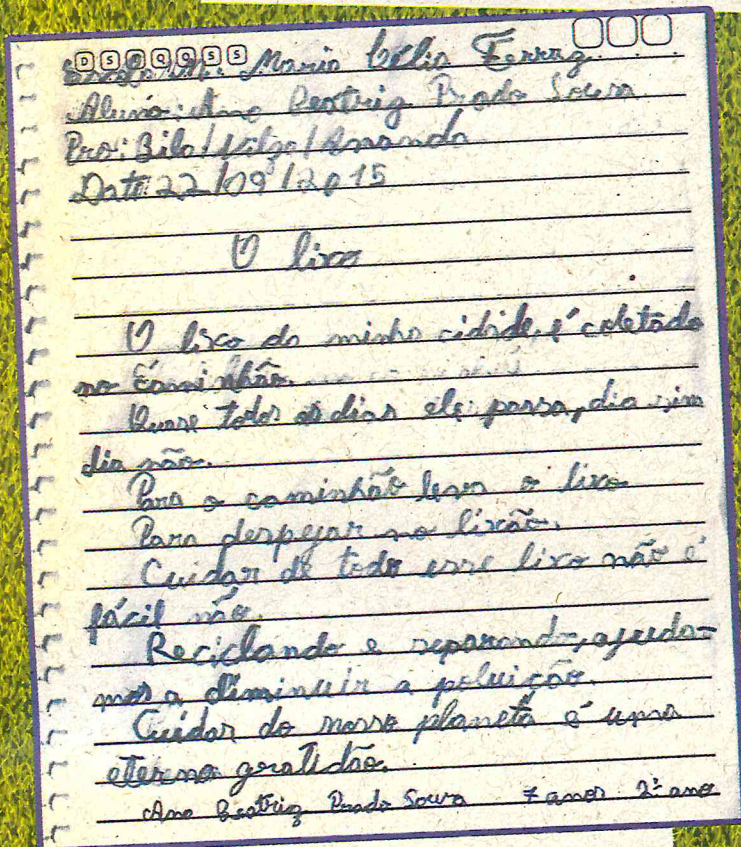 D S T Q Q S S
Escola M: Maria Célia Ferraz
Aluno: Ana Beatriz Prado Sousa
Pro: Bila / / Amanda
Data: 22/09/2015
O lixo
O lixo da minha cidade, é coletado
no caminhão.
Quase todos os dias ele passa, dia sim
dia não.
Para o caminhão leva o lixo
Para despejar no lixão.
Cuidar de todo esse lixo não é
fácil não.
Reciclando e separando, ajuda-
mos a diminuir a poluição.
Cuidar do nosso planeta é uma
eterna gratidão.
Ana Beatriz Prado Souza 7 anos 2º ano